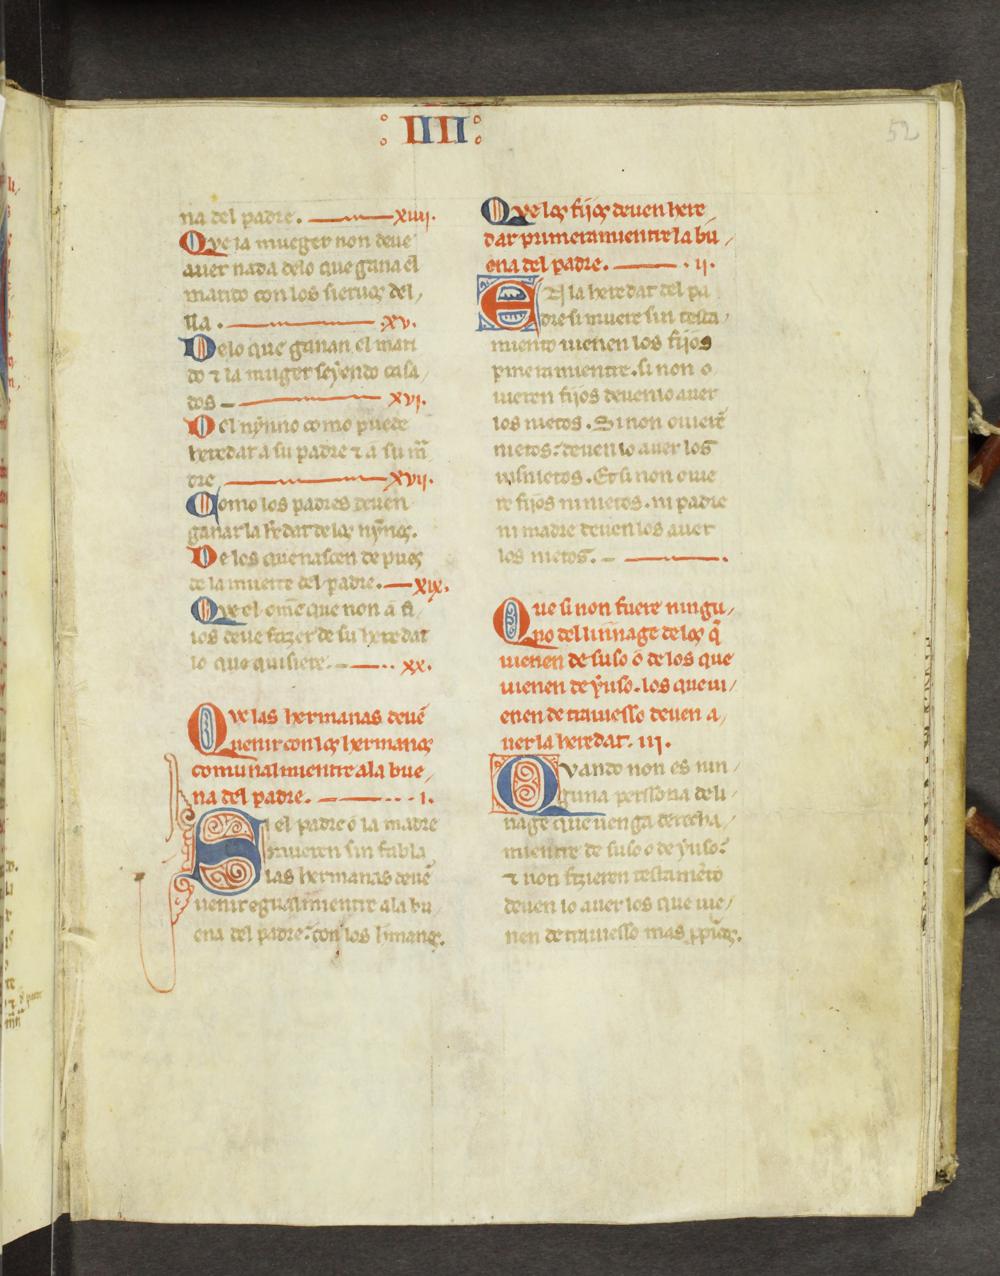 : IIII :
52
na del padre. xiiii.
Que la mugier non deue
auer nada delo que gana el
marito con los sieruos del
lla. .xv.
Delo que ganan el mari
do ⁊ la muger seyendo casa
dos xvi.
Del nynno como puede
heredar a su padre ⁊ a su ma
dre xvii.
Como los padres deuen
ganar la hedat delos nynos.
De los que nascen de pues
de la muerte del padre. xix.
Que el ome que non a fi
ios deue fazer de su heredat
lo que quisiere. xx.
Que las hermanas deuē
uenir con los hermanos
comunalmientre ala bue
na del padre. i.
Si el padre o la madre
mueren sin fabla
las hermanas deuē
uenir egualmientre ala bu
ena del padre: con los hmanos.
Que los fijos deuen here
dar primeramientre la bu
ena del padre. .ii.
En la heredat del pa
dre si muere sin testa
miento uienen los fijos
primeramientre. si non o
uieren fijos deuenlo auer
los nietos. Si non ouierē
nietos: deuen lo auer los
uisnietos. Et si non ouie
re fijos ni nietos. ni padre
ni madre deuen los auer
los nietos.
Que si non fuere ningu
no del linnage delos q̄
uienen de suso o de los que
uienen de yuso. los que ui
enen de trauiesso deuen a
uer la heredat. iii.
Quando non es nin
guna perssona de li
nage que uenga derecha
mientre de suso o de yuso:
⁊ non fizieren testamēto
deuen lo auer los que uie
nen de trauiesso mas ꝓpīcos.